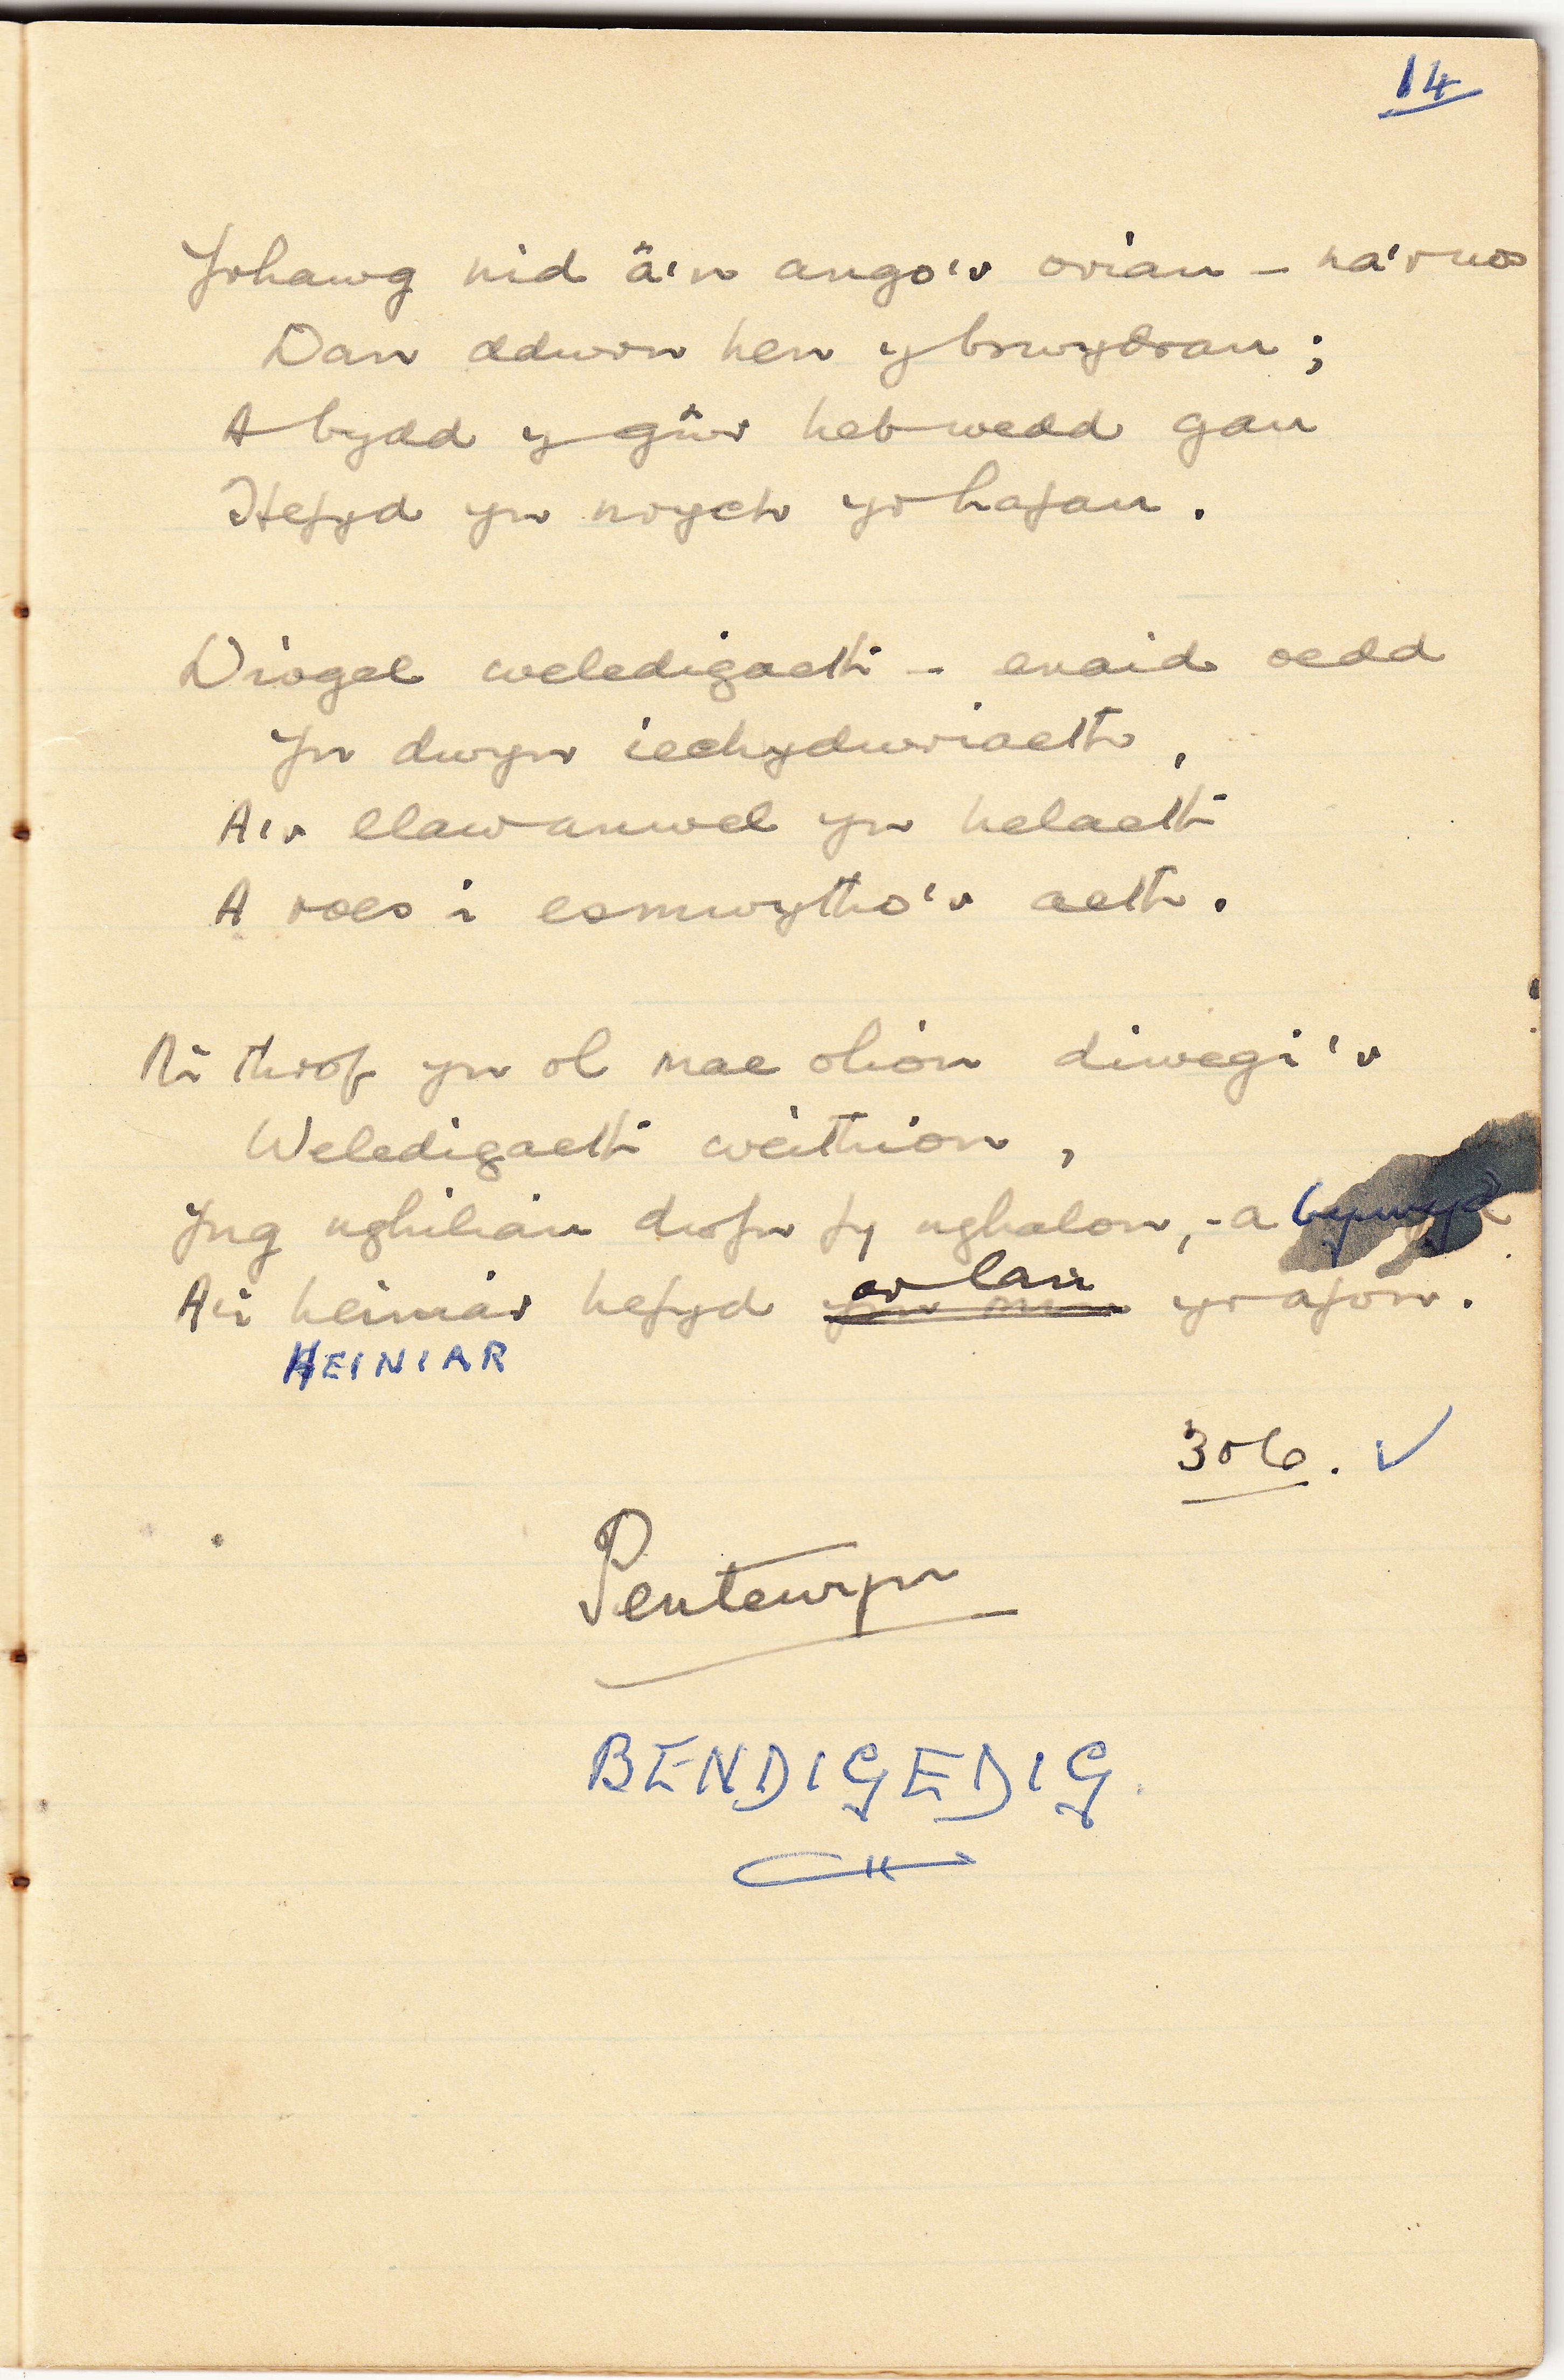 14
Yrhawg nid â'n ango'r orian – na'r nos
Dan ddwrn hen y brwydran ;
A bydd y gŵr heb wedd gan
Hefyd yn nrych yr hafan .
Diogel weledigaeth – enaid oedd
Yn dwyn iechydwriaeth ,
A'r llaw anwel yn helaeth
A roes i esmwytho'r aeth .
Ni throf yn ol mae olion diwegi'r
Weledigaeth weithion ,
Yng nghilian dwfn fy nghalon, - a bywyd
A'i heiniar hefyd ar lan yr afon .
HEINIAR
306 . ✓
Pentewyn
BENDIGEDIG .